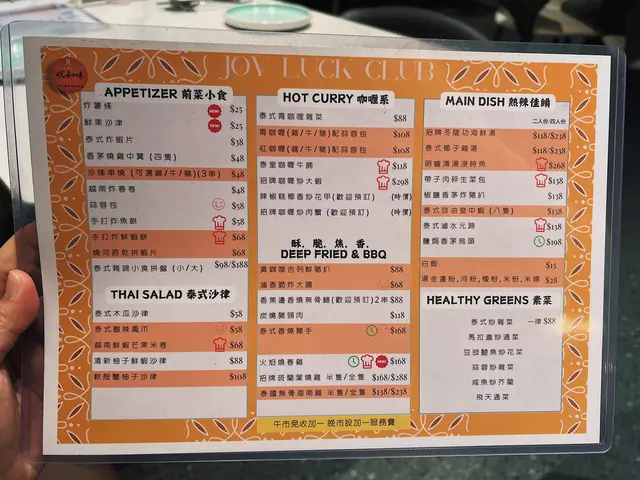 JOY LUCK CLUB
APPETIZER 前菜小食
炸薯條 $25
鮮果沙律 $25
泰式炸蝦片 $38
香茅燒雞中翼 (四隻) $48
沙嗲串燒 (可選雞/牛/豬)(3串) $48
越南炸春卷 $48
蒜蓉包 $58
手打炸魚餅 $58
手打炸鮮蝦餅 $68
燒河乾乾拼燒片 $68
泰式雜錦小食拼盤 (小/大) $98/$188
THAI SALAD 泰式沙律
泰式木瓜沙律 $58
泰式酸辣鳳爪 $58
越南鮮蝦芒果米卷 $68
清新柚子鮮蝦沙律 $88
軟殼蟹柚子沙律 $108
HOT CURRY 咖喱系
泰式青咖喱雞菜 $88
青咖喱(雞/牛/豬)配蒜蓉包 $108
紅咖喱(雞/牛/豬)配蒜蓉包 $108
泰皇咖喱牛腩 $118
招牌咖喱炒大蝦 $298
辣椒糕椰香炒花甲(歡迎預訂) (時價)
招牌咖喱炒肉蟹(歡迎預訂) (時價)
酥.脆.焦.香.
DEEP FRIED & BBQ
黃咖喱吉列鮮豬扒 $88
滷香脆炸大腸 $68
香焦邊香燒無骨鯒(歡迎預訂)2串 $88
炭燒豬頸肉 $118
泰式香燒豬手 $168
火焰燒春雞 $168
招牌斑蘭葉燒雞 半隻/全隻 $168/$288
泰國無骨海南雞 半隻/全隻 $138/$238
午市免收加一 晚市設加一服務費
MAIN DISH 熱辣佳餚
二人份/四人份
招牌冬陰功海鮮湯 $118/$238
泰式椰子雞湯 $118/$238
明爐清湯浸時魚 $268
帶子肉碎生菜包 $138
椒鹽香茅炸豬扒 $138
泰式豉油皇中蝦 (八隻) $138
泰式滷水元蹄 $138
鹽焗香茅烏頭 $198
白飯 $15
湯金邊粉,河粉,檬粉,米粉,米線 $28
HEALTHY GREENS 素菜
泰式炒雜菜 一律 $88
馬拉盞炒通菜
豆豉鯪魚炒花菜
蒜蓉炒雜菜
咸魚炒芥蘭
飛天通菜